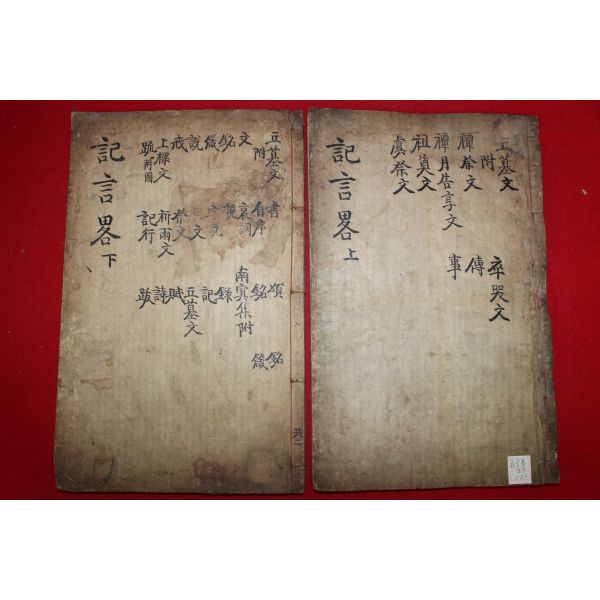 丘墓文
附
禫祭文
禫月告享文
祖奠文
虞祭文
卒哭文
傳
事
記言畧 上
丘墓文
附
文
銘
箴
說
戒
上樑文
疏 附圖
書
有序
哀詞
文
祭文
祈雨文
記行
頌
銘
南冥集附
錄
記
丘墓文
賦
詩
跋
銘
箴
記言畧 下
共二